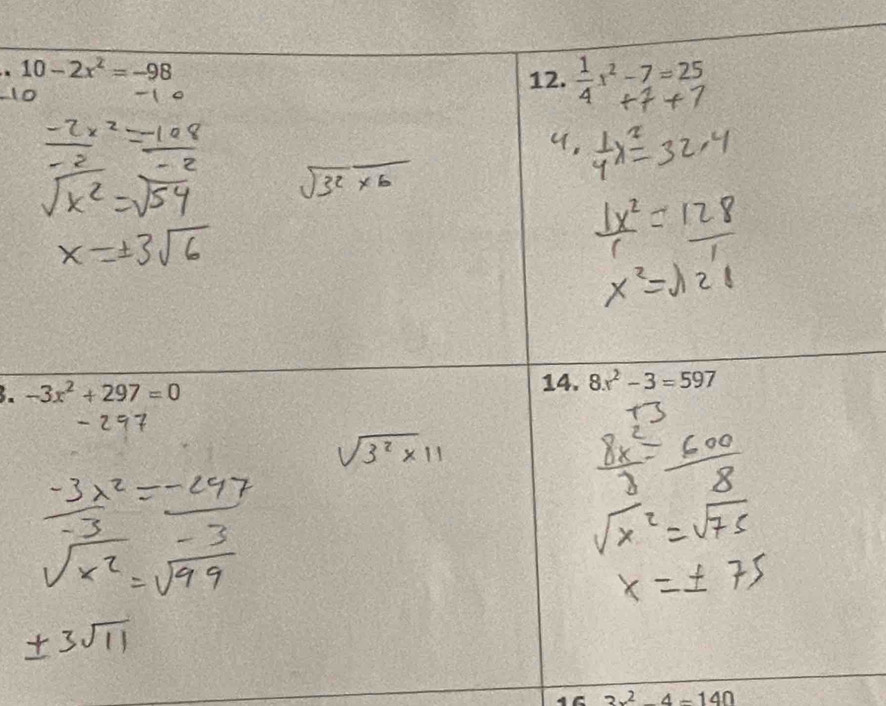 . 10 − 2x² = −98
-10 -10
-2x² = -108
-2 -2
√x² = √54
x = ±3√6
√3² × 6
12. 1/4 x² − 7 = 25
+7 +7
4. 1/4 x² = 32.4
1x² = 128
1 1
3. −3x² + 297 = 0
-297
-3x² = -297
-3 -3
√x² = √99
±3√11
√3² × 11
14. 8x² − 3 = 597
+3
8x² = 600
8 8
√x² = √75
x = ± 75
16 3x² − 4 = 140